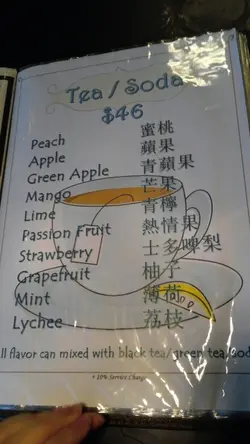 Tea / Soda
$46
Peach 蜜桃
Apple 蘋果
Green Apple 青蘋果
Mango 芒果
Lime 青檸
Passion Fruit 熱情果
Strawberry 士多啤梨
Grapefruit 柚子
Mint 薄荷
Lychee 荔枝
ll flavor can mixed with black tea/ green tea/ sod
+ 10% Service Charge